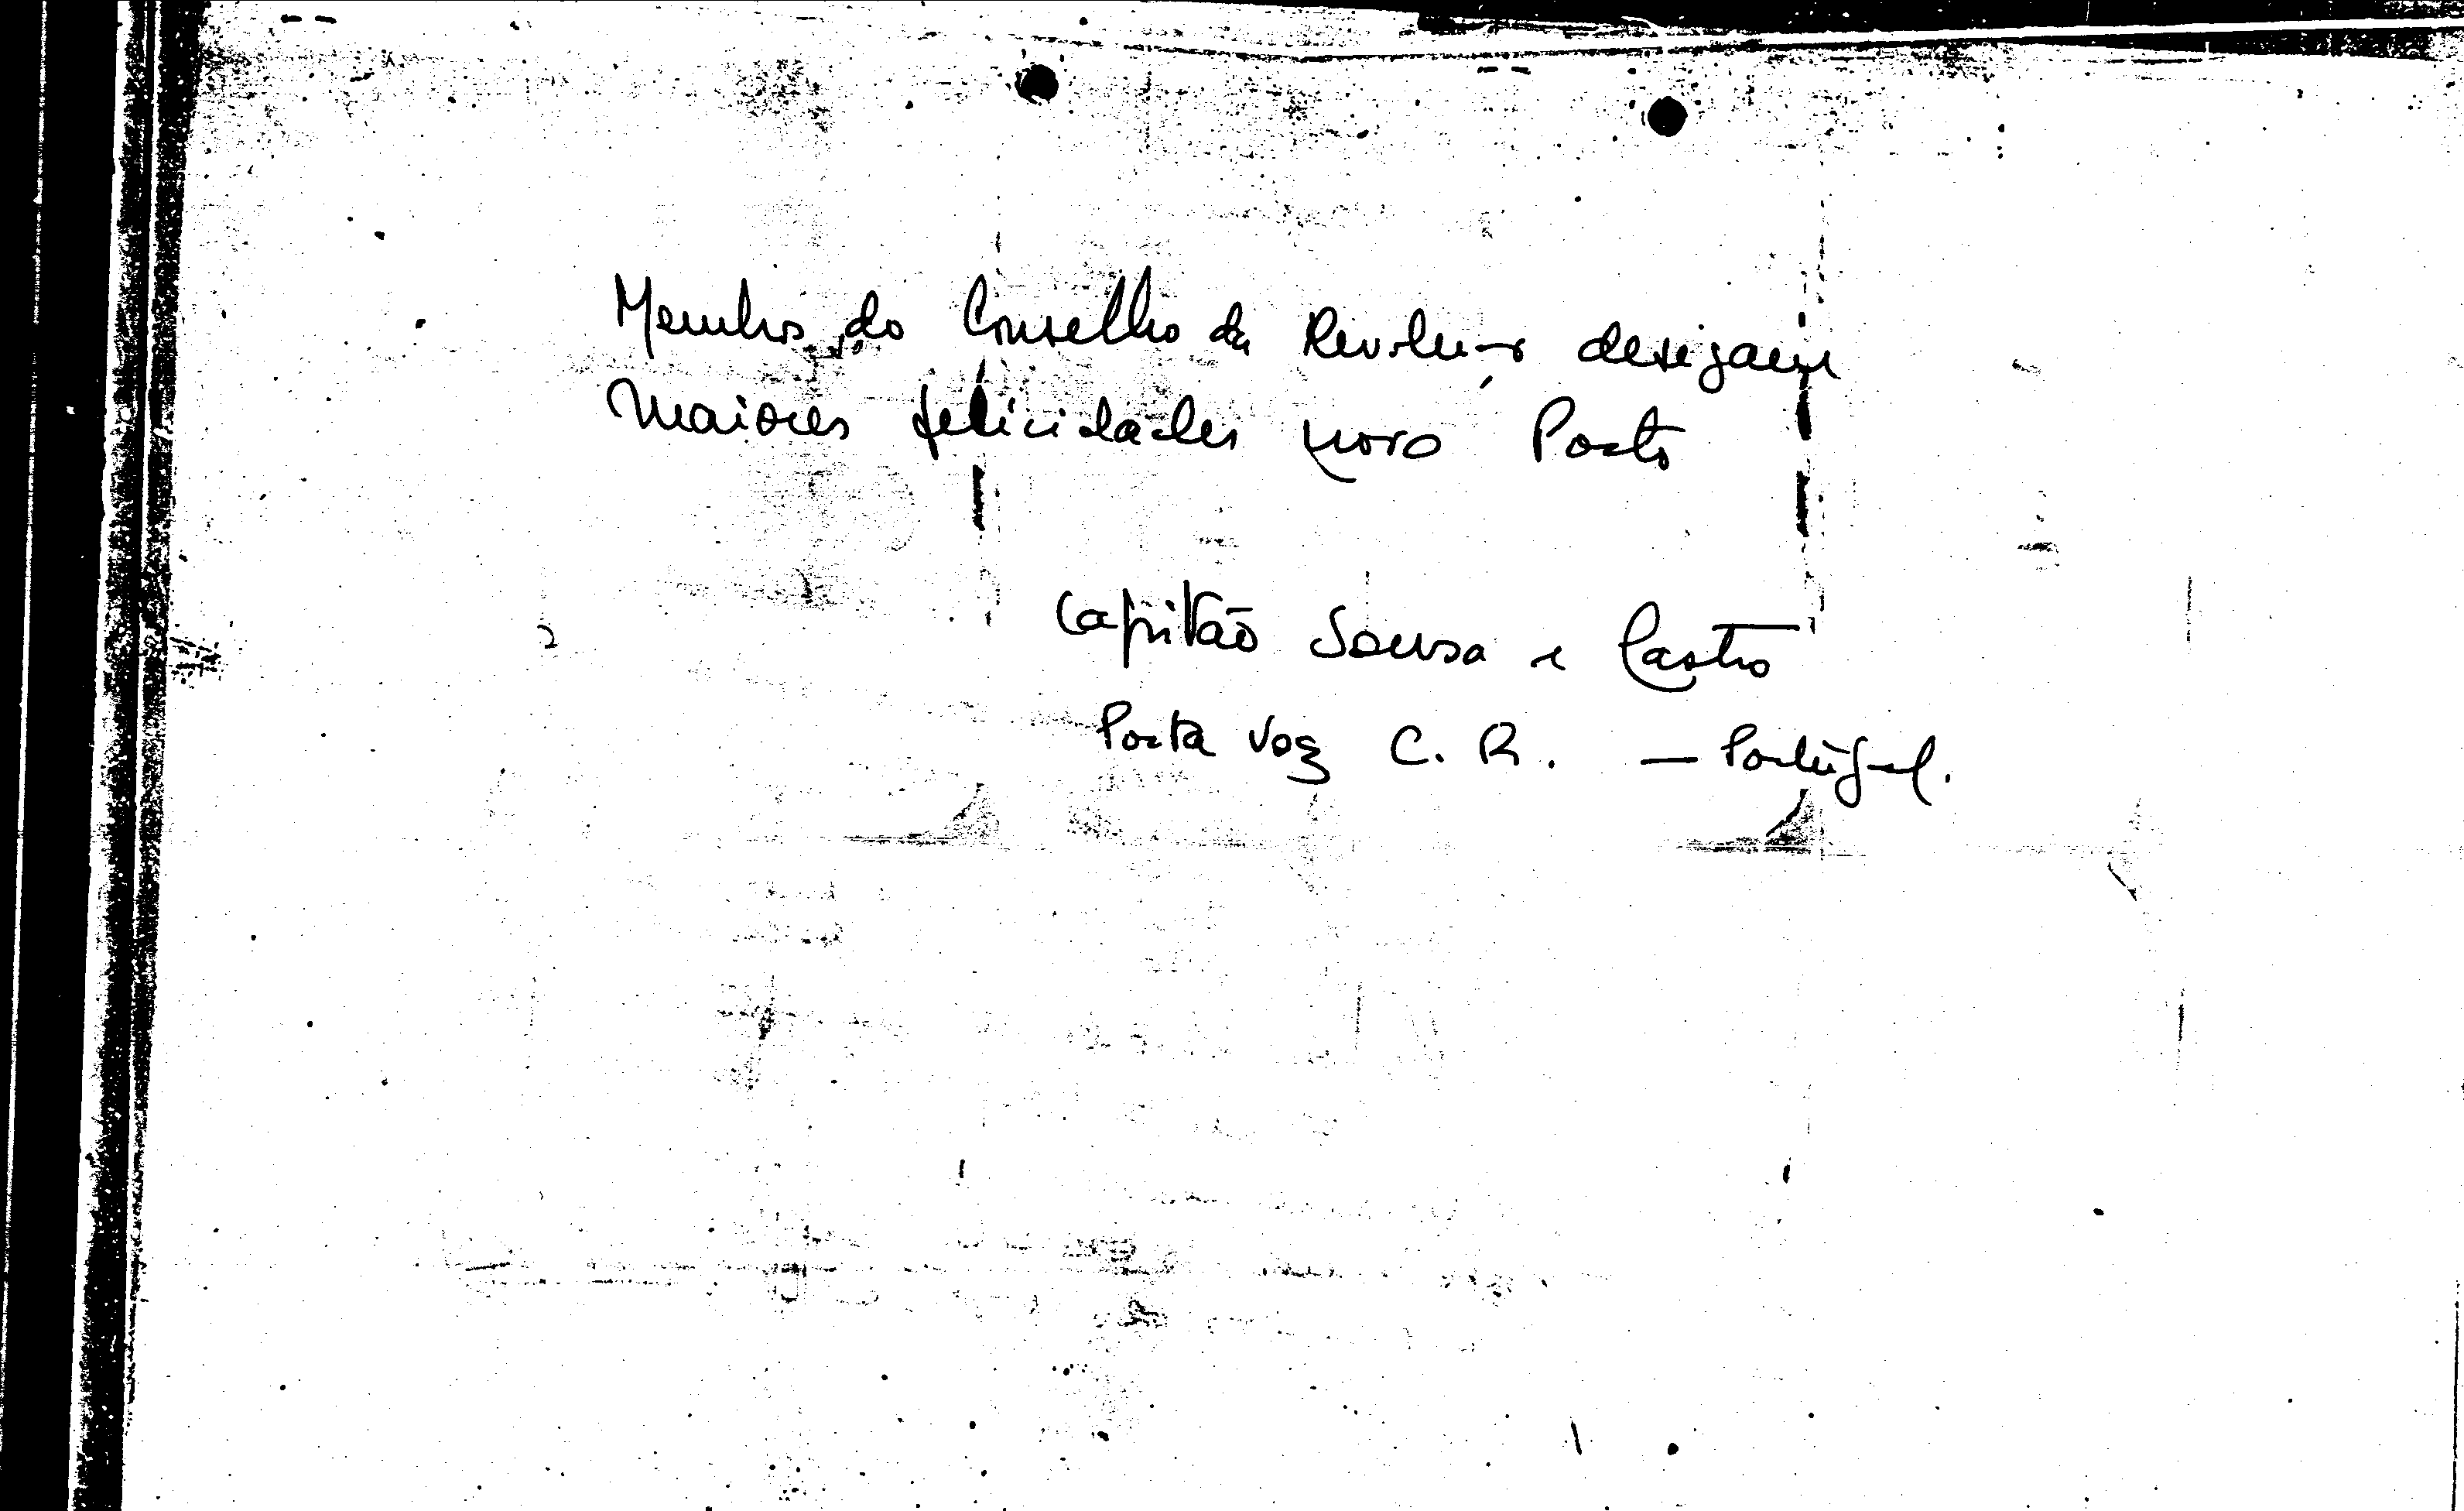 Membros do Conselho da Revolução desejam
Maiores felicidades novo Posto
Capitão Sousa e Castro
Porta Voz C. R. — Portugal.